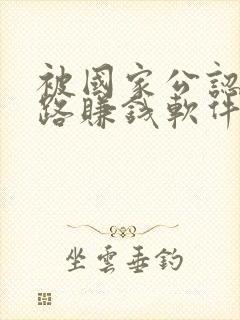 被國家公認
路賺錢軟件
坐雲垂釣